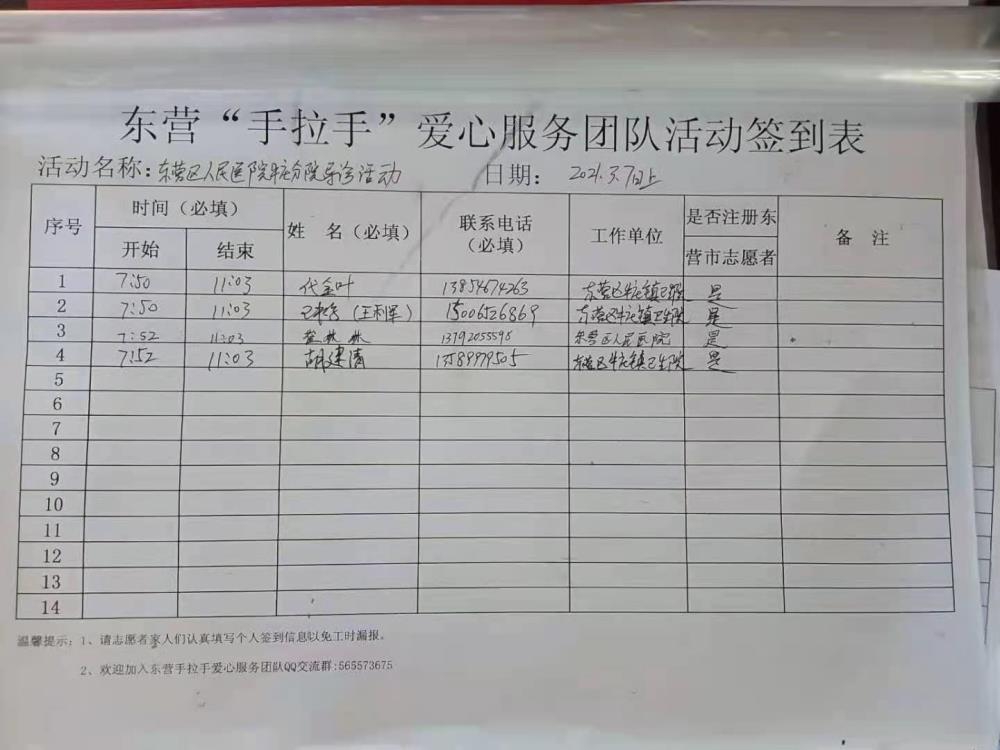 东营“手拉手”爱心服务团队活动签到表
活动名称：东营区人民医院牛庄分院导诊活动 日期： 2021.3.7日上
序号 时间（必填） 姓 名（必填） 联系电话（必填） 工作单位 是否注册东营市志愿者 备 注
开始 结束
1 7:50 11:03 代金叶 13854674263 东营区牛庄镇卫生院 是
2 7:50 11:03 （王利军） 15006526869 东营区牛庄镇卫生院 是
3 7:52 11:03 13792055598 东营区人民医院 是
4 7:52 11:03 胡建清 13589979505 东营区牛庄镇卫生院 是
5
6
7
8
9
10
11
12
13
14
温馨提示：1、请志愿者家人们认真填写个人签到信息以免工时漏报。
2、欢迎加入东营手拉手爱心服务团队QQ交流群:565573675